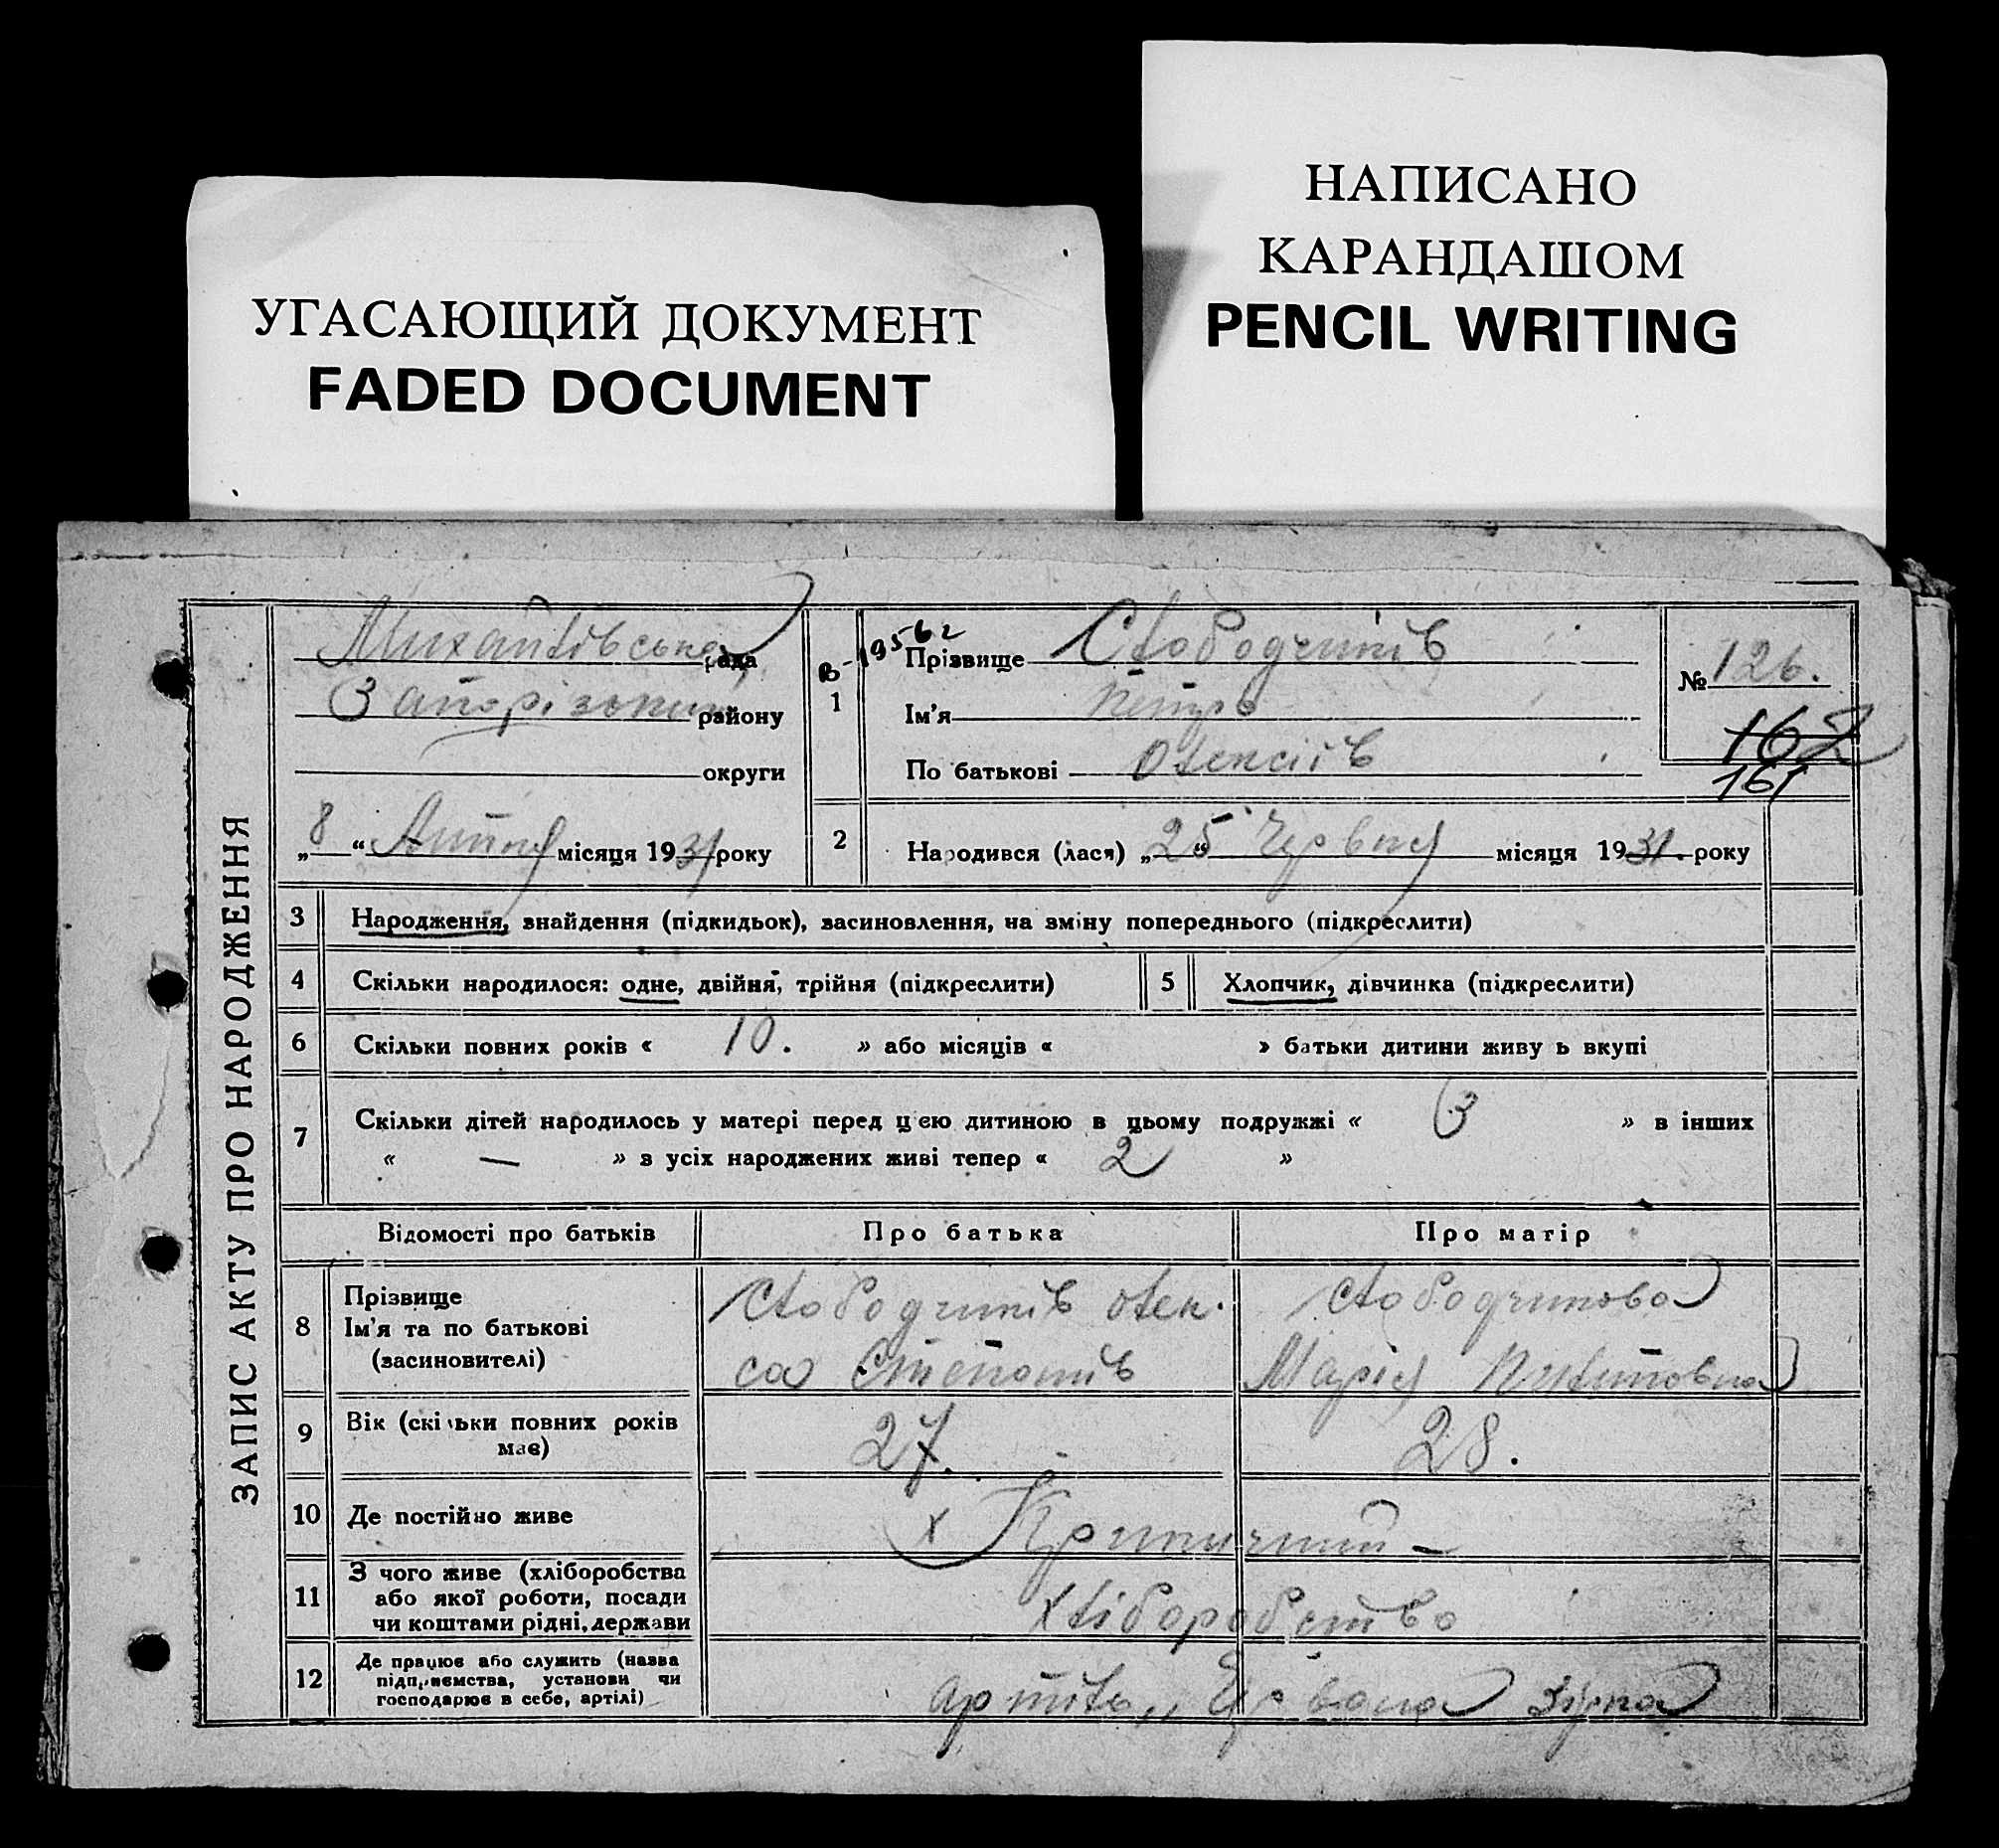 УГАСАЮЩИЙ ДОКУМЕНТ
FADED DOCUMENT
НАПИСАНО
КАРАНДАШОМ
PENCIL WRITING
ЗАПИС АКТУ ПРО НАРОДЖЕННЯ
Михайлівська рада
району
округи
„8“ Липня місяця 1931 року
в-1956г
1 Прізвище Слободчиків
Ім'я Петро
По батькові Олексіїв
№ 126.
162
161
2 Народився (лася) „25“ Червня місяця 1931. року
3 Народження, знайдення (підкидьок), засиновлення, на зміну попереднього (підкреслити)
4 Скільки народилося: одне, двійня, трійня (підкреслити)
5 Хлопчик, дівчинка (підкреслити)
6 Скільки повних років « 10. » або місяців « » батьки дитини живу ь вкупі
7 Скільки дітей народилось у матері перед цією дитиною в цьому подружжі « 3 » в інших
« — » з усіх народжених живі тепер « 2 »
Відомості про батьків Про батька Про матір
8 Прізвище
Ім'я та по батькові
(засиновителі)
Слободчиків Олек-
са Степанів
Слободчикова
Марія
9 Вік (скільки повних років
має)
27.
28.
10 Де постійно живе
х
11 З чого живе (хліборобства
або якої роботи, посади
чи коштами рідні, держави
Хліборобство
12 Де працює або служить (назва
підприємства, установи чи
господарює в себе, артілі)
артіль „Червона